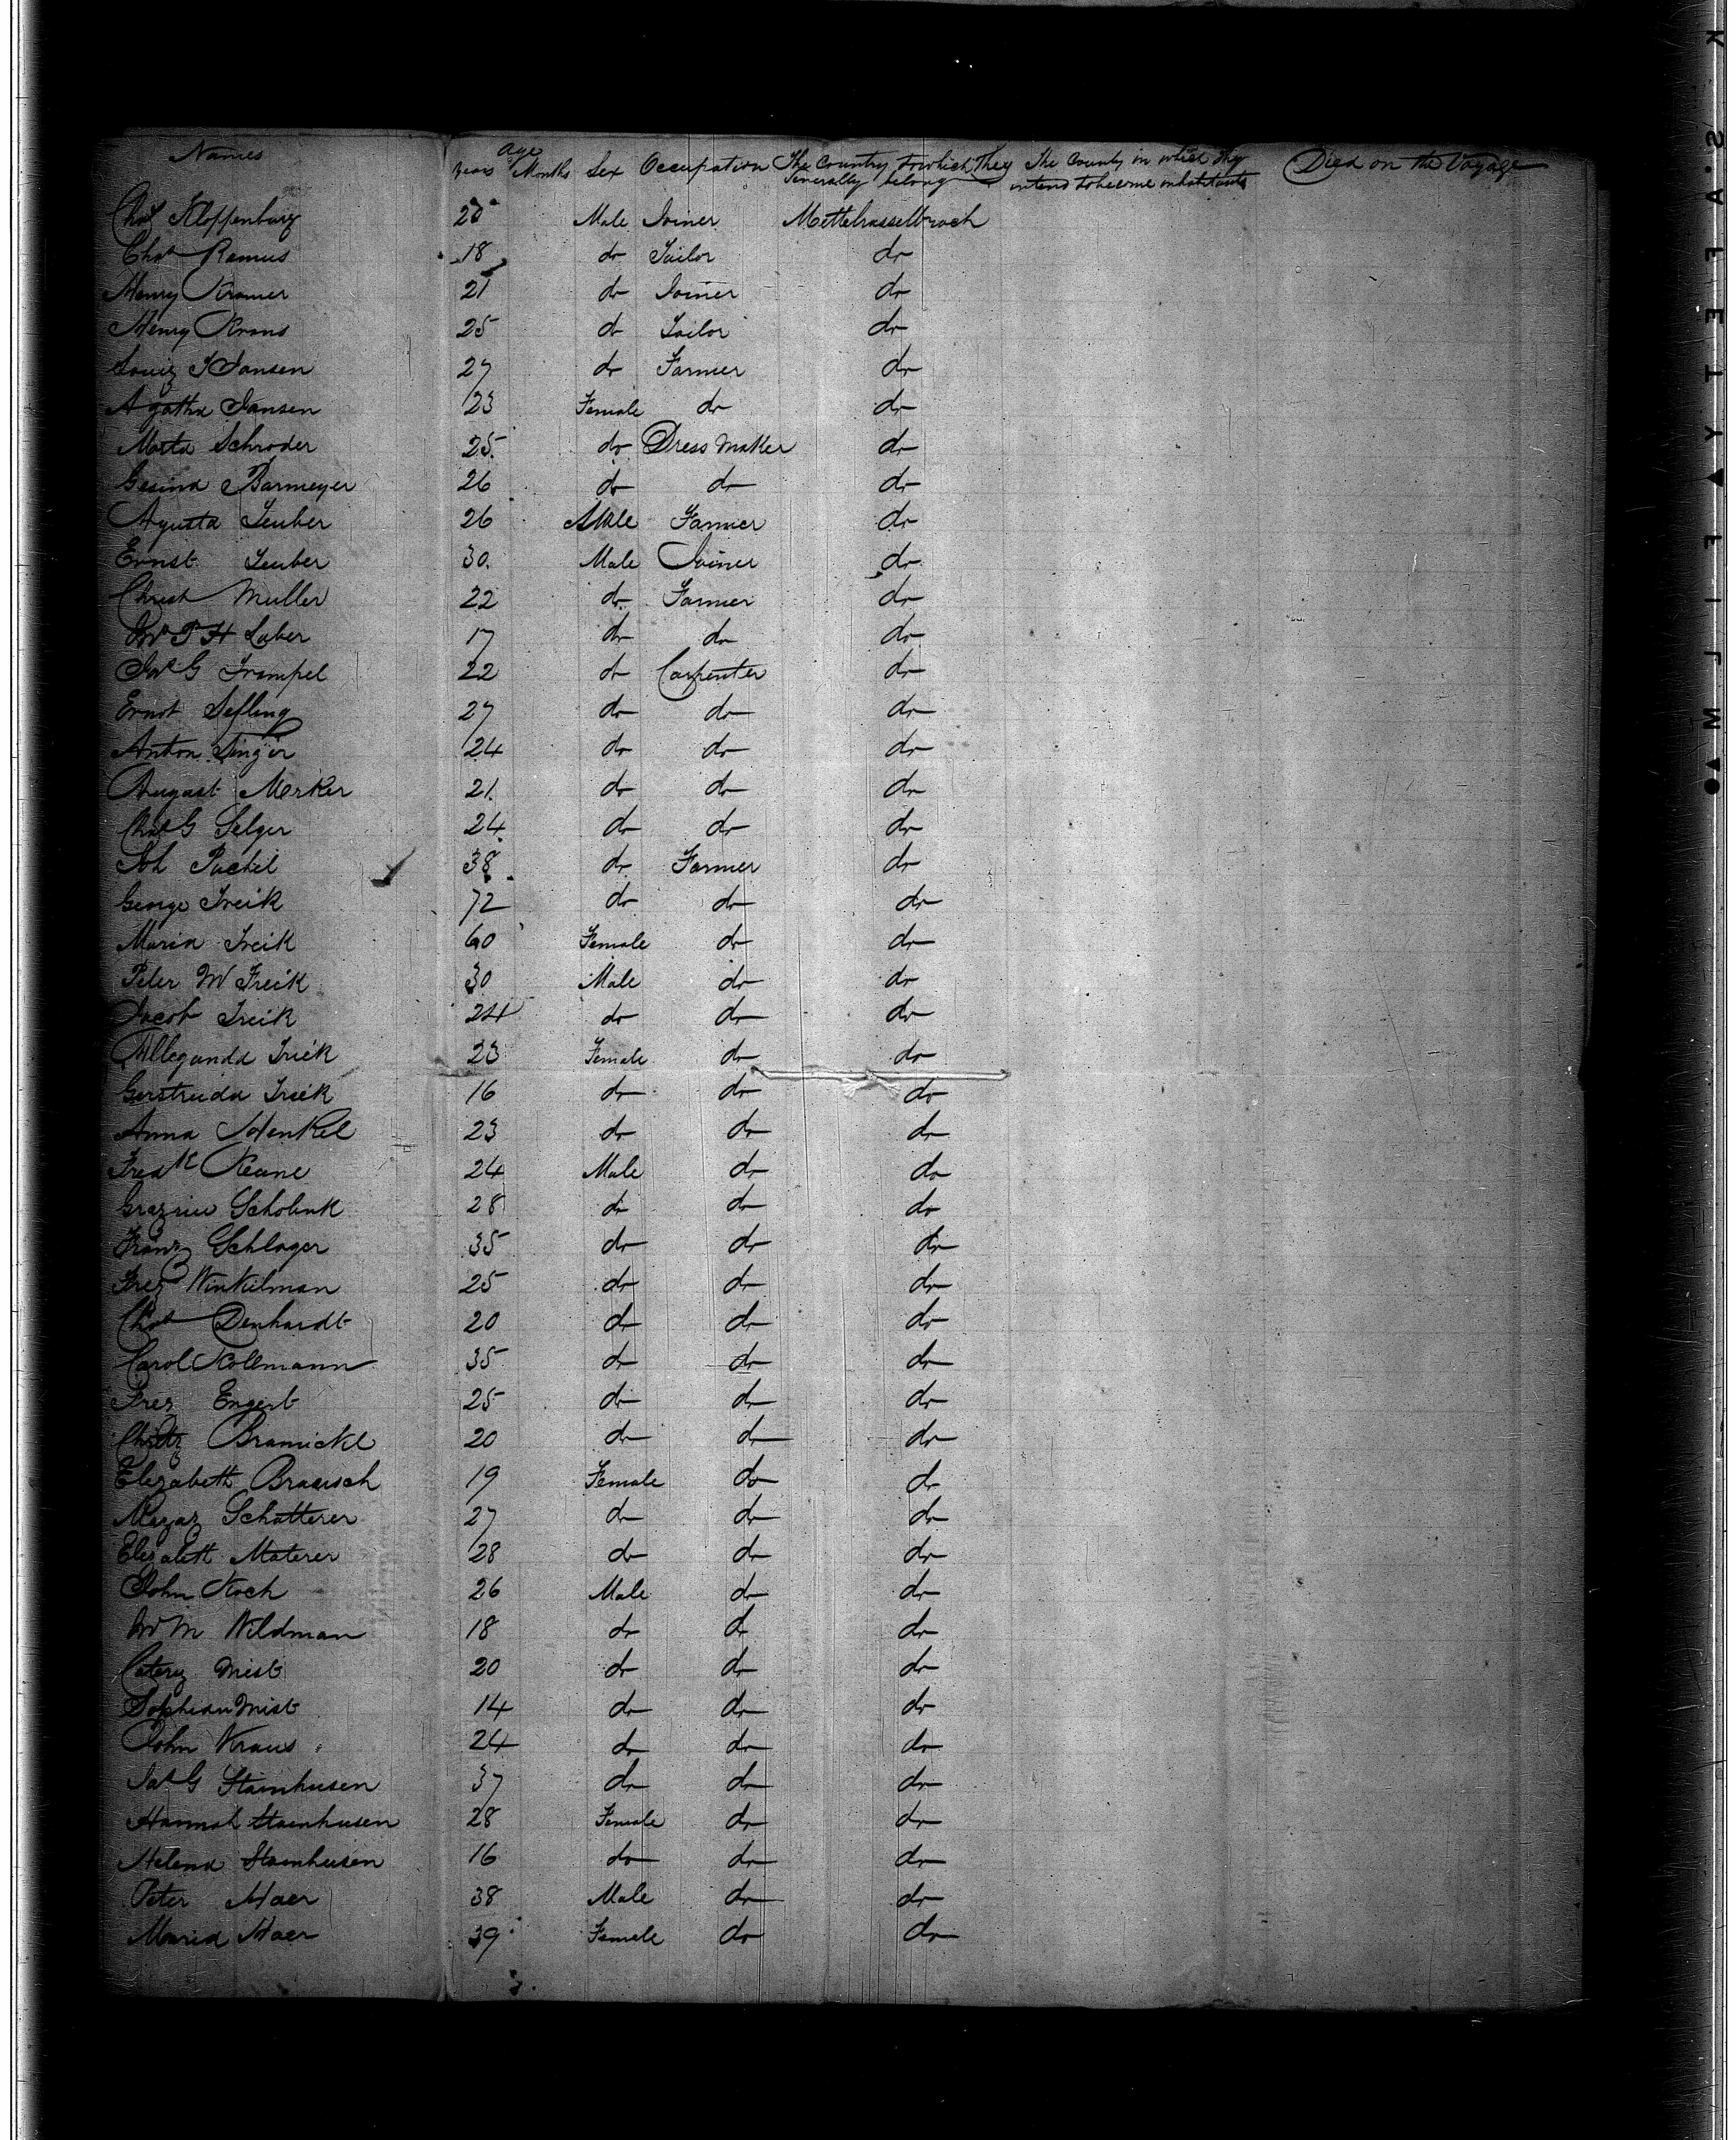 Names Age Years Months Sex Occupation The Country to which They Severally belong The County in which they intend to become inhabitants Died on the Voyage
Chas Kloppenburg 20 Male Joiner Mettelrasselbroch
Chas Ramus 18 do Tailor do
Henry Kramer 21 do Joiner do
Henry Krans 25 do Tailor do
Louiz J Jansen 27 do Farmer do
Agatha Jansen 23 Female do do
Marta Schroder 25 do Dress maker do
Gesina Barmeyer 26 do do do
Agusta Teuber 26 Male Farmer do
Ernst Teuber 30 Male Joiner do
Christ Muller 22 do Farmer do
Wm P H Laber 17 do do do
Jno G Trompel 22 do Carpenter do
Ernst Sefling 27 do do do
Anton Singer 24 do do do
August Merker 21 do do do
Chas G Selger 24 do do do
Joh Puchel 38 do Farmer do
George Freik 72 do do do
Maria Freik 60 Female do do
Peter W Freik 30 Male do do
Jacob Freik 24 do do do
Allegunda Freik 23 Female do do
Gerstruda Freik 16 do do do
Anna Henkel 23 do do do
Fredk Keane 24 Male do do
Scholink 28 do do do
Franz Schlager 35 do do do
Frez Winkilman 25 do do do
Chas Denhardt 20 do do do
Carol Kollmann 35 do do do
Frez Engert 25 do do do
Bramickl 20 do do do
Elezabeth Braeisch 19 Female do do
Margar Schatterer 27 do do do
Elezabeth Materer 28 do do do
John Koch 26 Male do do
Wm Wildman 18 do do do
Caterz Mist 20 do do do
Sophean Mist 14 do do do
John Kraus 24 do do do
Jas G Stamhusen 37 do do do
Hannah Stamhusen 28 Female do do
Helena Stamhusen 16 do do do
Peter Haer 38 Male do do
Maria Haer 39 Female do do